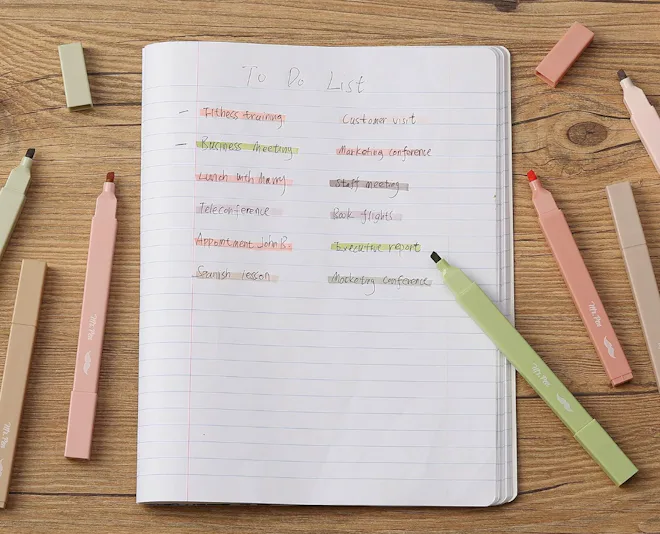 To Do List
- Fitness training
- Business Meeting
Lunch with Mammy
Teleconference
Appointment John B.
Spanish Lesson
Customer visit
Marketing conference
Staff meeting
Book flights
Executive report
Marketing conference
Mr. Pen
Mr. Pen
Mr. Pen
Mr. Pen